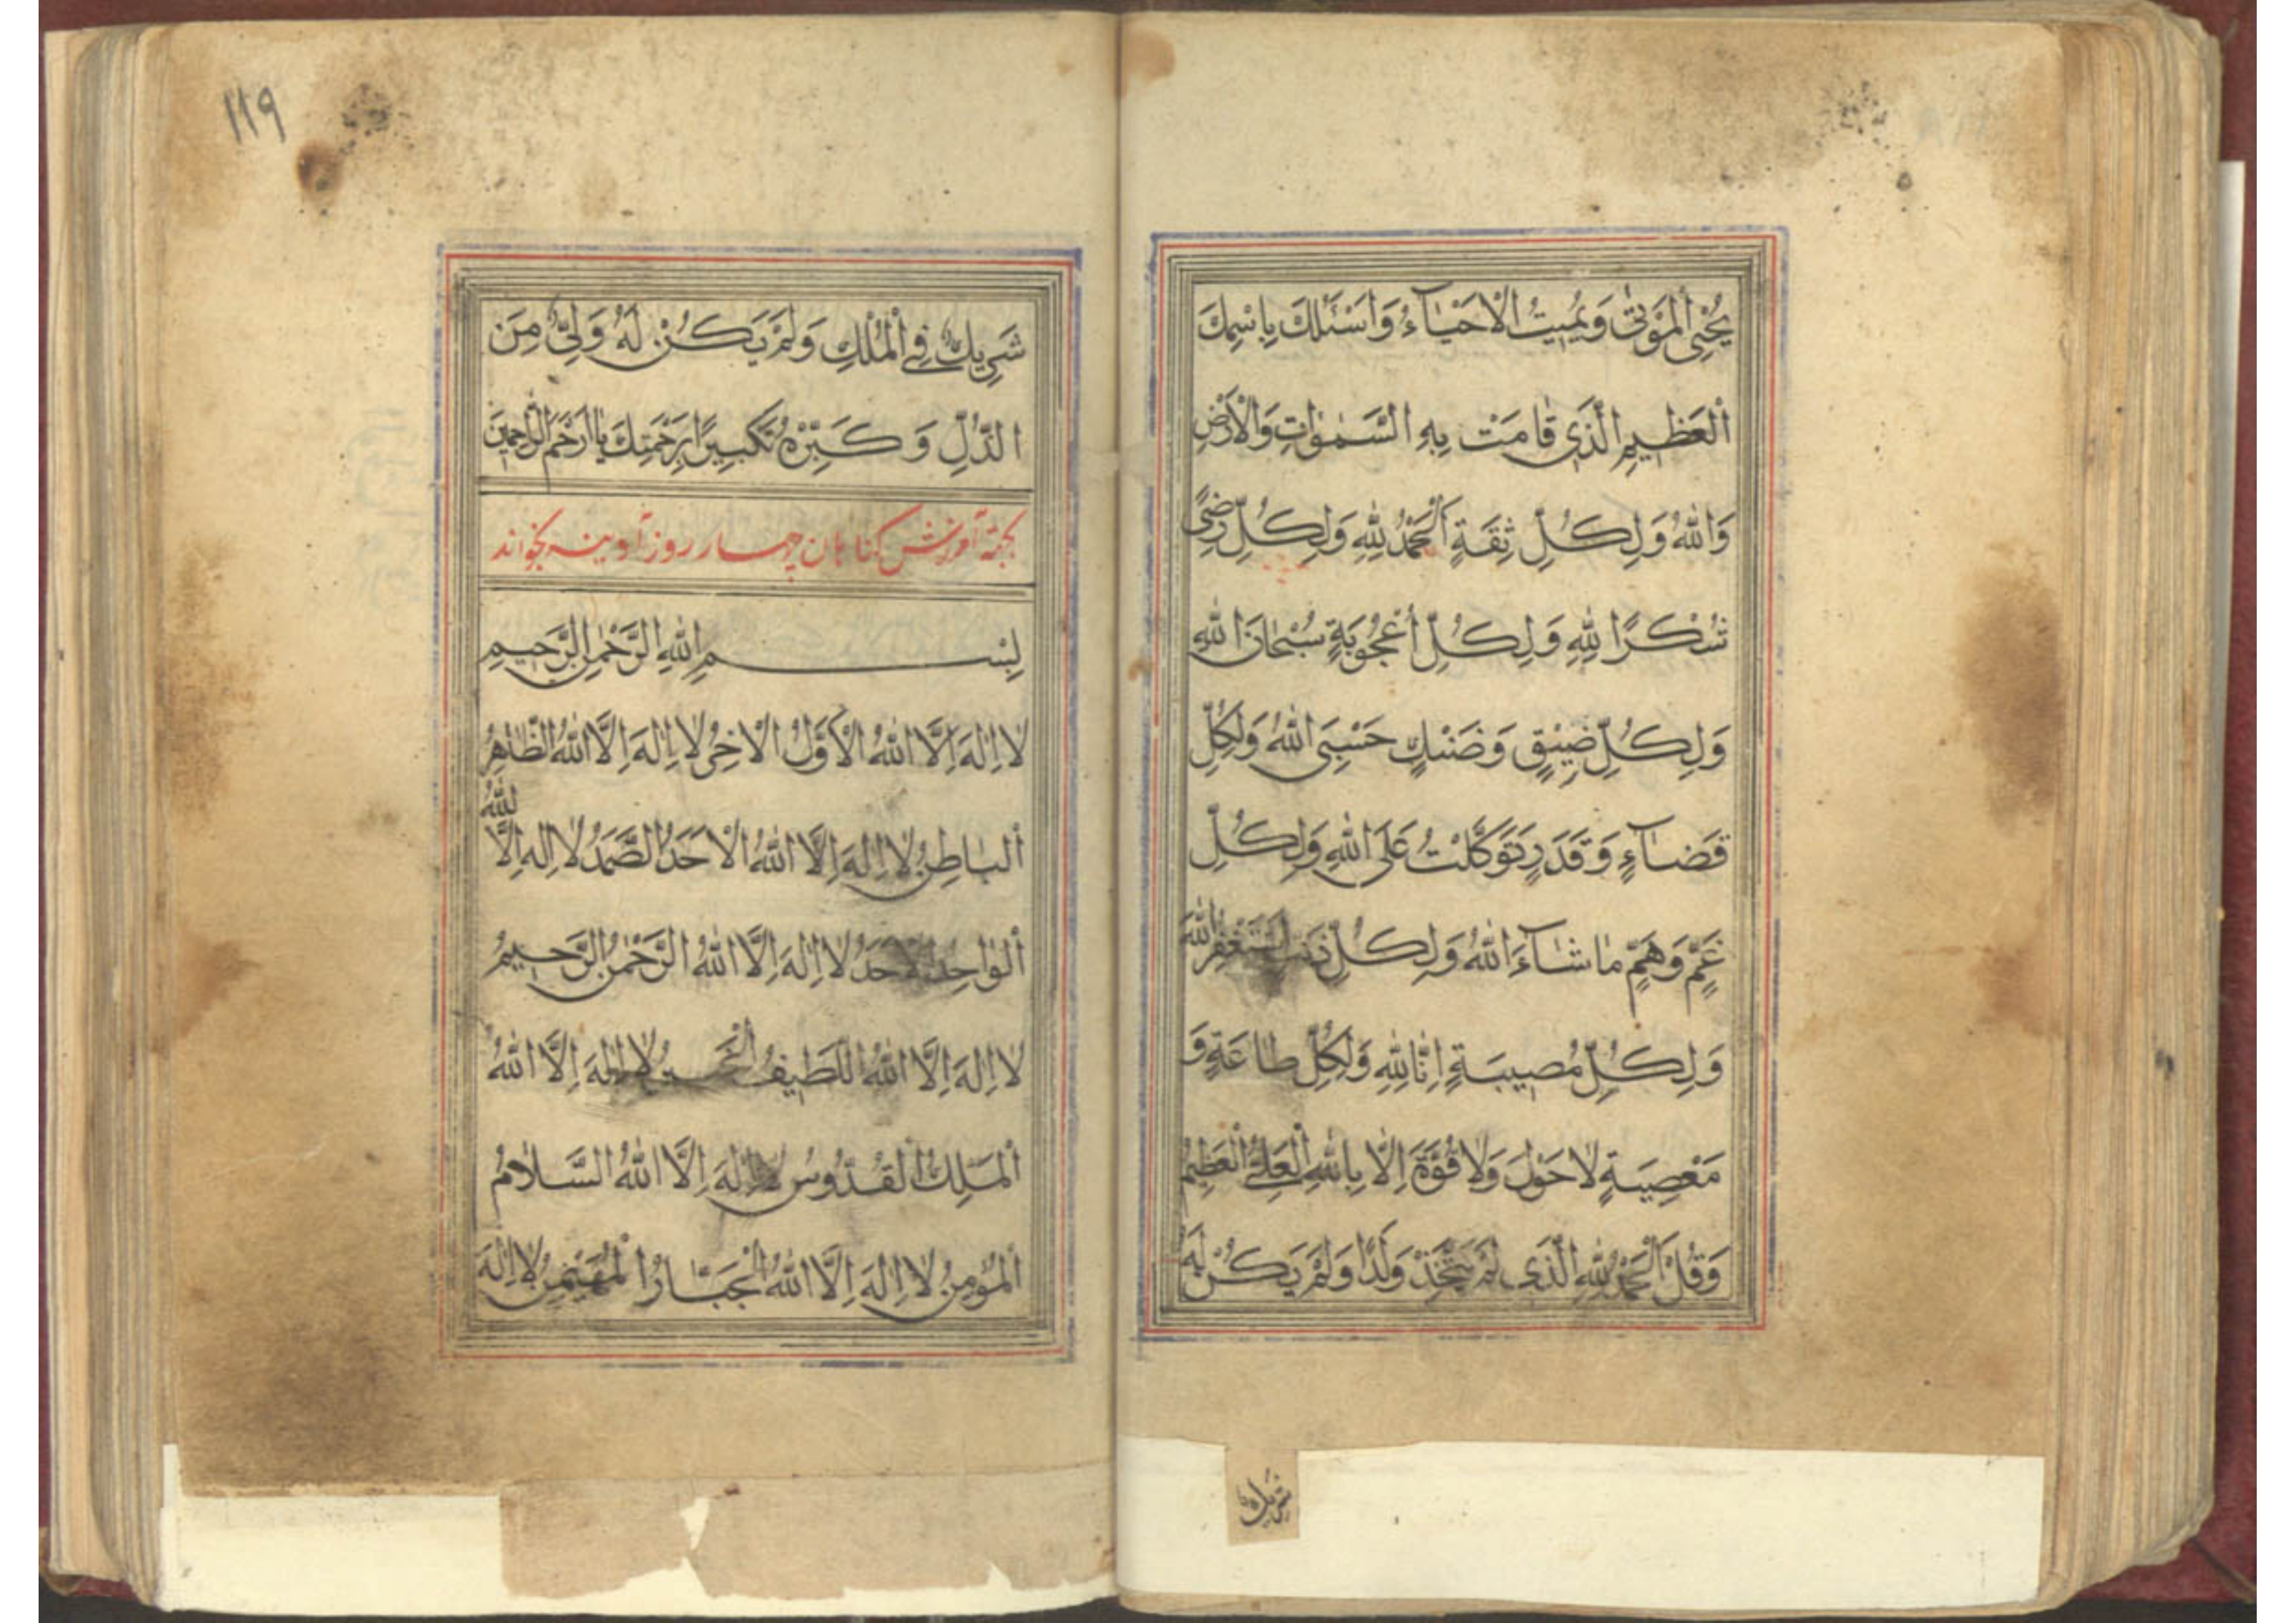 يُحْيِي الْمَوْتٰى وَيُمِيتُ الْاَحْيَآءُ وَاَسْئَلُكَ بِاسْمِكَ
اَلْعَظِيمِ الَّذِي قَامَتْ بِهِ السَّمٰوَاتِ وَالْاَرْضِ
وَاللّٰهُ وَلِكُلِّ ثِقَةٍ اَلْحَمْدُ لِلّٰهِ وَلِكُلِّ رِضًى
شُكْرًا لِلّٰهِ وَلِكُلِّ اُعْجُوبَةٍ سُبْحَانَ اللّٰهِ
وَلِكُلِّ ضِيْقٍ وَضَنْكٍ حَسْبِيَ اللّٰهُ وَلِكُلِّ
قَضَآءٍ وَقَدَرٍ تَوَكَّلْتُ عَلَى اللّٰهِ وَلِكُلِّ
غَمٍّ وَهَمٍّ مَا شَآءَ اللّٰهُ وَلِكُلِّ ذَنْبٍ اَسْتَغْفِرُ اللّٰهَ
وَلِكُلِّ مُصِيبَةٍ اِنَّا لِلّٰهِ وَلِكُلِّ طَاعَةٍ وَ
مَعْصِيَةٍ لَا حَوْلَ وَلَا قُوَّةَ اِلَّا بِاللّٰهِ الْعَلِيِّ الْعَظِيمِ
وَقُلْ اَلْحَمْدُ لِلّٰهِ الَّذِي لَمْ يَتَّخِذْ وَلَدًا وَلَمْ يَكُنْ لَهُ
شَرِيكٌ
١١٩
شَرِيكٌ فِي الْمُلْكِ وَلَمْ يَكُنْ لَهُ وَلِيٌّ مِنَ
الذُّلِّ وَكَبِّرْهُ تَكْبِيرًا بِرَحْمَتِكَ يَا اَرْحَمَ الرَّاحِمِينَ
بجهة آمرزش کناهان چهار روز آدینه بخواند
بِسْمِ اللّٰهِ الرَّحْمٰنِ الرَّحِيمِ
لَا اِلٰهَ اِلَّا اللّٰهُ الْاَوَّلُ الْاٰخِرُ لَا اِلٰهَ اِلَّا اللّٰهُ الظَّاهِرُ
اَلْبَاطِنُ لَا اِلٰهَ اِلَّا اللّٰهُ الْاَحَدُ الصَّمَدُ لَا اِلٰهَ اِلَّا اللّٰهُ
اَلْوَاحِدُ الْاَحَدُ لَا اِلٰهَ اِلَّا اللّٰهُ الرَّحْمٰنُ الرَّحِيمُ
لَا اِلٰهَ اِلَّا اللّٰهُ اللَّطِيفُ الْخَبِيرُ لَا اِلٰهَ اِلَّا اللّٰهُ
اَلْمَلِكُ الْقُدُّوسُ لَا اِلٰهَ اِلَّا اللّٰهُ السَّلَامُ
اَلْمُؤْمِنُ لَا اِلٰهَ اِلَّا اللّٰهُ الْجَبَّارُ الْمُهَيْمِنُ لَا اِلٰهَ